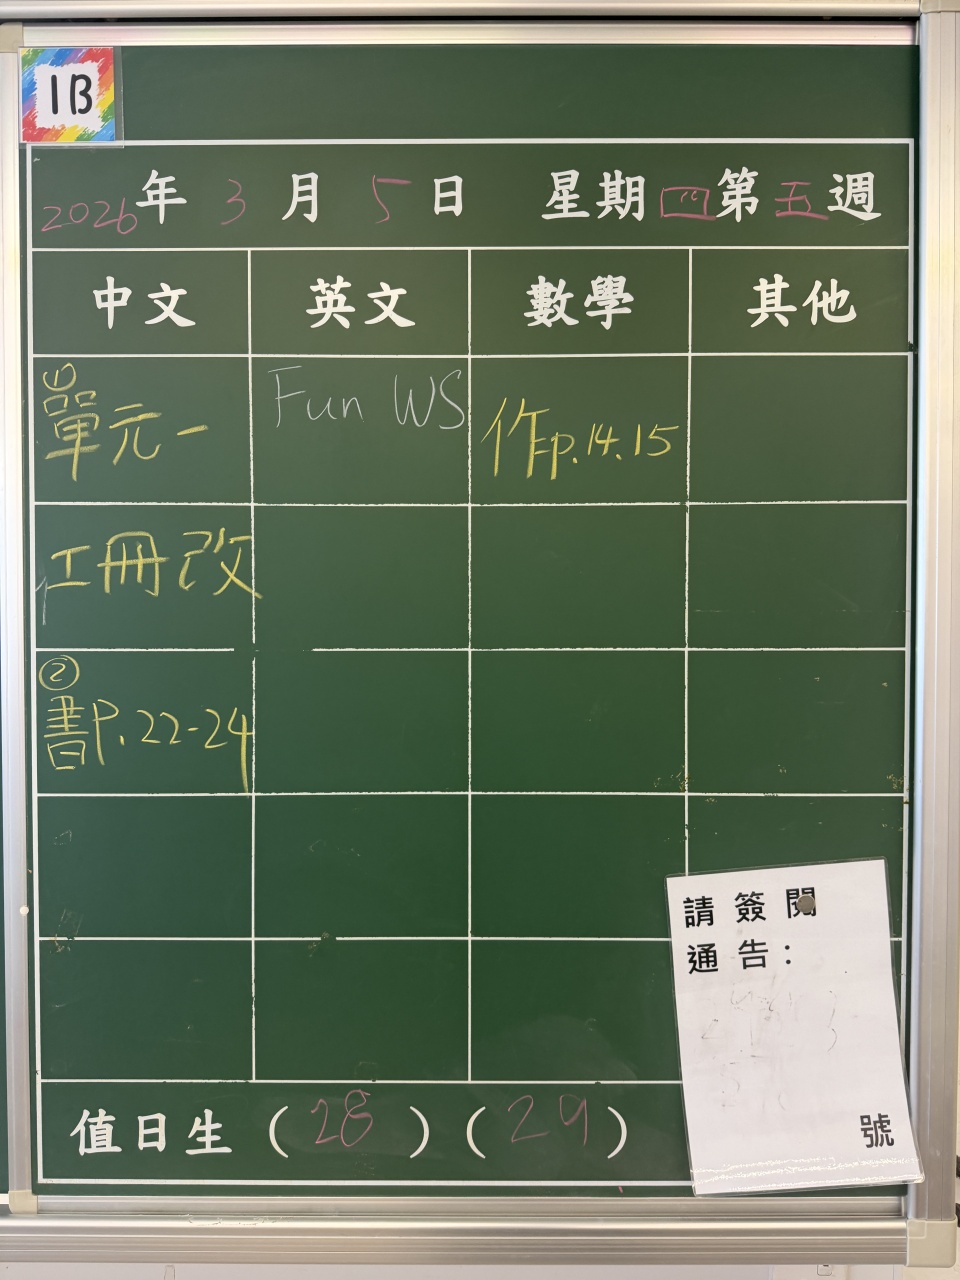 1B
2026年 3 月 5 日 星期四第五週
中文 英文 數學 其他
① Fun WS
單元一 作p.14.15
工冊改
②
書P.22-24
請簽閱
通告：
號
值日生（28）（29）